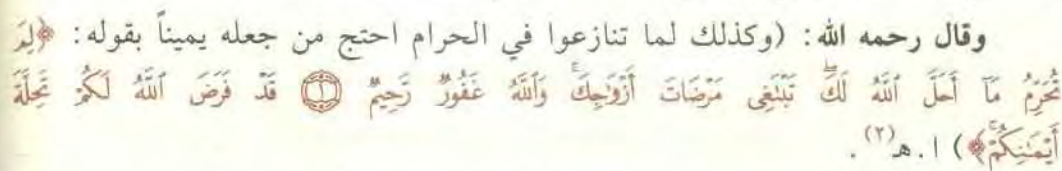 وقال رحمه الله: (وكذلك لما تنازعوا في الحرام احتج من جعله يميناً بقوله: ﴿لِمَ
تُحَرِّمُ مَآ أَحَلَّ ٱللَّهُ لَكَۖ تَبْتَغِى مَرْضَاتَ أَزْوَٰجِكَۚ وَٱللَّهُ غَفُورٌ رَّحِيمٌ ١ قَدْ فَرَضَ ٱللَّهُ لَكُمْ تَحِلَّةَ
أَيْمَٰنِكُمْۚ﴾) ا.هـ(٢).